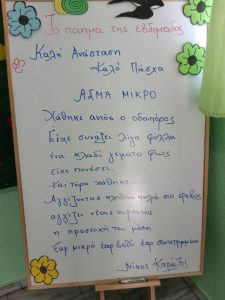 Το ποίημα της εβδομάδας
Καλή Ανάσταση
Καλό Πάσχα
ΑΣΜΑ ΜΙΚΡΟ
Χάθηκε αυτός ο οδοιπόρος
Είχε συνάξει λίγα φύλλα
ένα κλαδί γεμάτο φως
είχε πονέσει.
Και τώρα χάθηκε...
Αγγίζοντας αληθινά πουλιά στο έρεβος
αγγίζει νέους ουρανούς
η προσευχή του μάχη
έαρ μικρό έαρ βαθύ έαρ συντετριμμένο
Νίκος Καρούζος